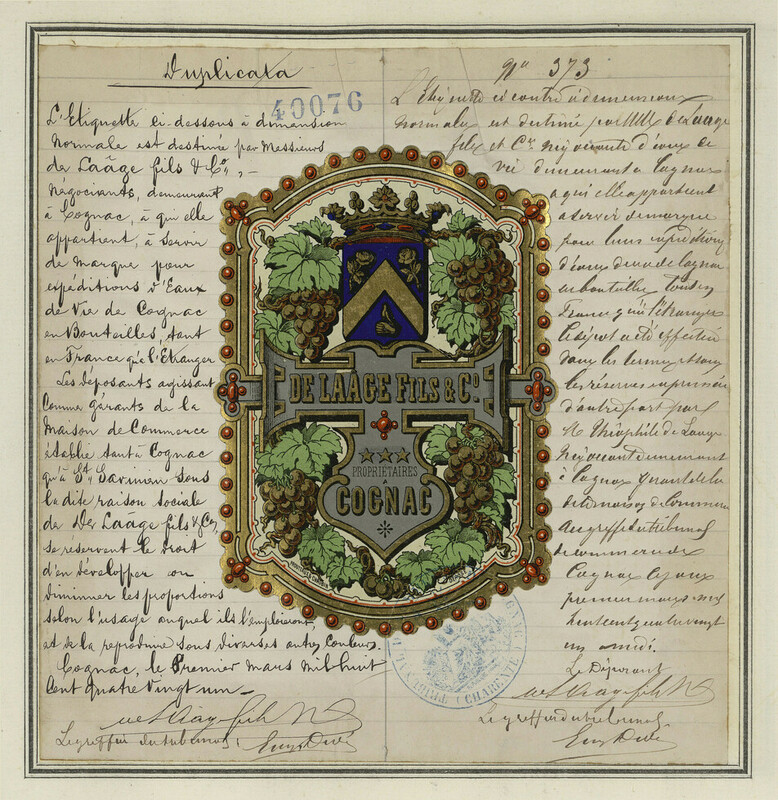 Duplicata
40076
L'Etiquette ci-dessous à dimension
normale est destinée par Messieurs
de Laâge fils & Co, -
négociants, demeurant
à Cognac, à qui elle
appartient, à servir
de marque pour
expéditions d'Eaux
de Vie de Cognac
en Bouteilles, tant
en France qu'à l'Etranger
Les déposants agissant
comme gérants de la
Maison de Commerce
établie tant à Cognac
qu'à St Savinien sous
la dite raison sociale
de De Laâge fils & Co,
se réservent le droit
d'en développer ou
diminuer les proportions
selon l'usage auquel ils l'emploieront,
et de la reproduire sous diverses autres couleurs.
Cognac, le Premier Mars Mil huit
Cent quatre vingt un -
Le greffier du tribunal
No 373
L'Etiquette ci contre à dimensions
normales est destinée par MM de Laage
fils et Cie négociants d'eaux de
vie demeurant à Cognac
a qui elle appartient
a servir de marque
pour leurs expéditions
d'eaux de vie de Cognac
en bouteilles tant en
France qu'à l'étranger
Le dépôt a été effectué
dans les termes et sous
les réserves exprimées
d'autre part par
M Théophile de Laage
Négociant demeurant
à Cognac gérant de la
dite maison de Commerce
Au greffe du tribunal
de commerce de
Cognac ce jour
premier mars mil
huit cent quatre vingt
un a midi.
Le Déposant
Le greffier du tribunal
DE LAÂGE FILS & Co.
PROPRIÉTAIRES
A
COGNAC
(CHARENTE)